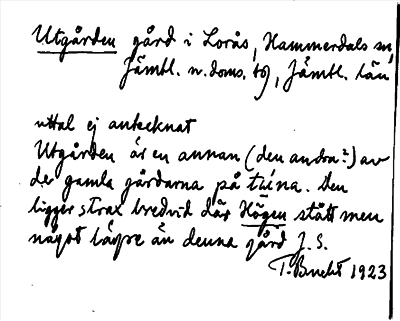 Utgården gård i Lorås, Hammerdals sn,
Jämtl. n. doms. tg, Jämtl. län
uttal ej antecknat
Utgården är en annan (den andra?) av
de gamla gårdarna på túna. Den
ligger strax bredvid där Högen stått men
något lägre än denna gård J. S.
T. Bucht 1923